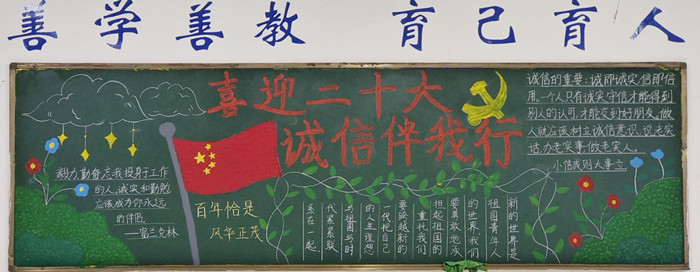 善学善教 育己育人
喜迎二十大
诚信伴我行
诚信的重要:诚即诚实,信即信
用。一个人只有诚实守信才能得到
别人的认可,才能交到好朋友,做
人就应该树立诚信意识,说老实
话,办老实事,做老实人。
小信成则大信立
的人,诚实和勤勉
应该成为你永远
的伴侣
——富兰克林
百年恰是
风华正茂
新的世界是
祖国青年人
的世界,我们
要勇敢地承
担起祖国的
重托,我们
要跨越新的
一代,把自己
的人生理想
与祖国与时
代紧紧联
系在一起。